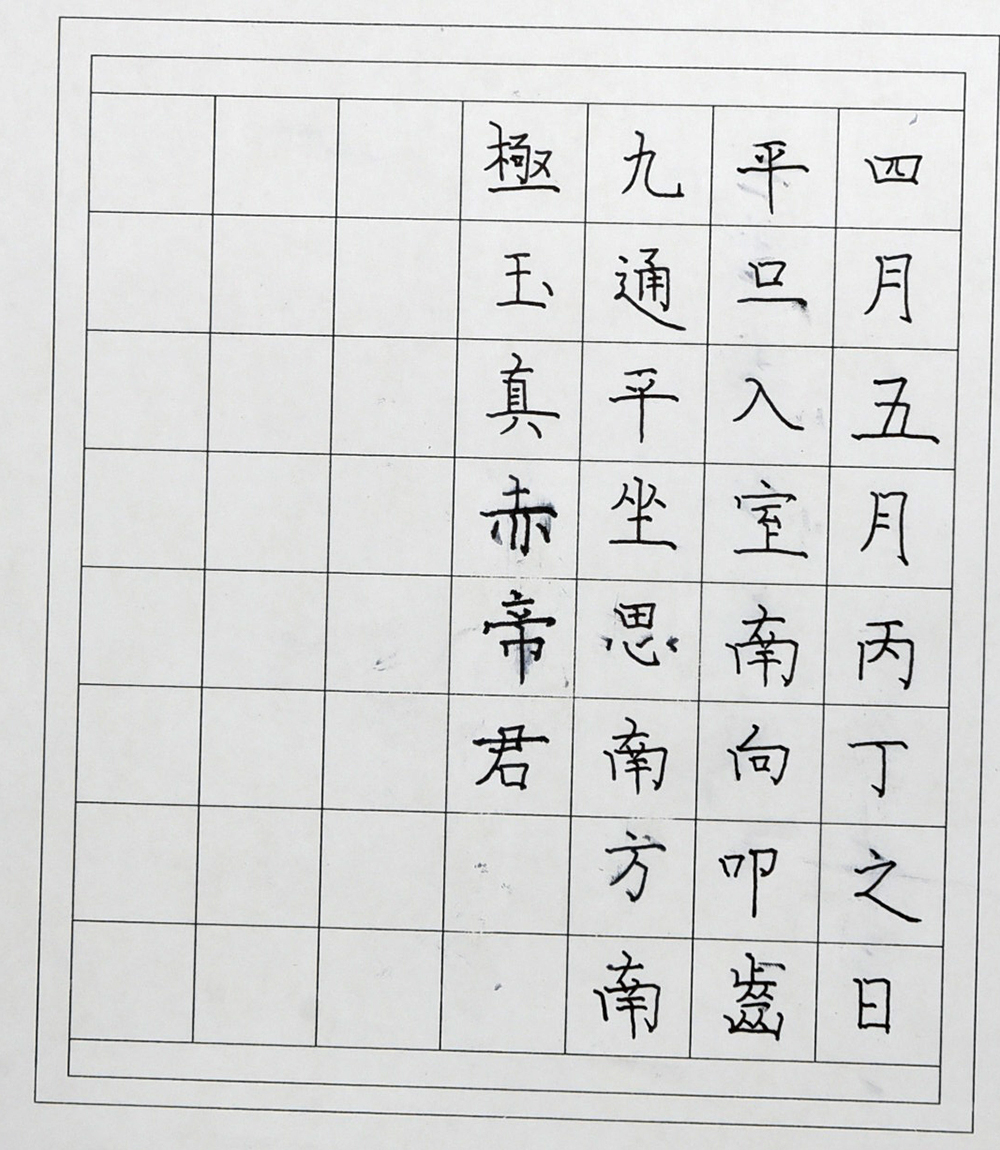 四月五月丙丁之日
平旦入室南向叩齒
九通平坐思南方南
極玉真赤帝君